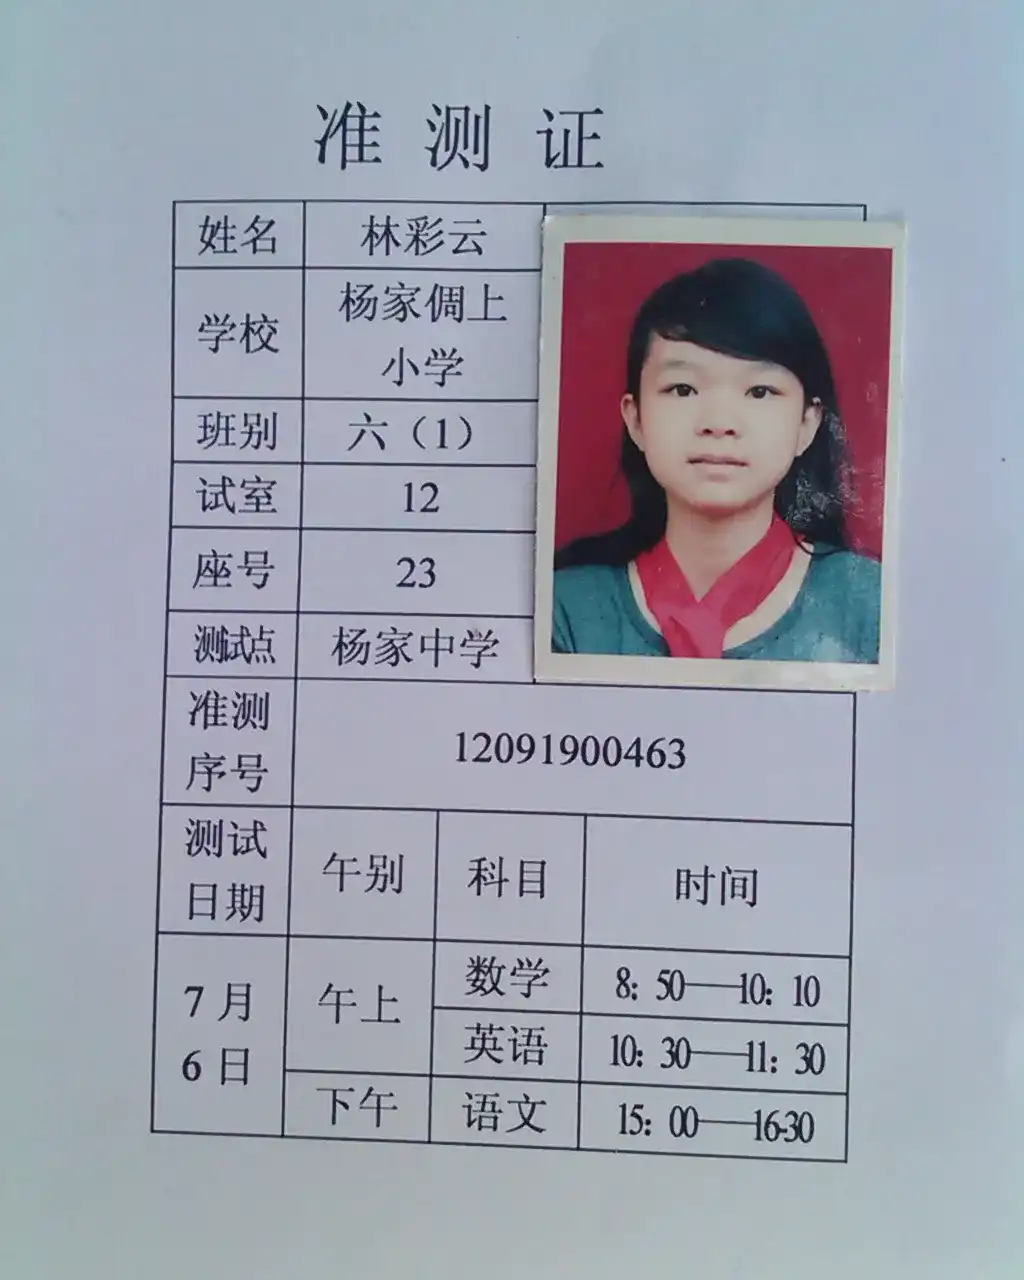 准测证
姓名 林彩云
学校 杨家倜上
小学
班别 六（1）
试室 12
座号 23
测试点 杨家中学
准测
序号
12091900463
测试
日期
午别 科目 时间
7月
6日
午上 数学 8：50——10：10
英语 10：30——11：30
下午 语文 15：00——16-30